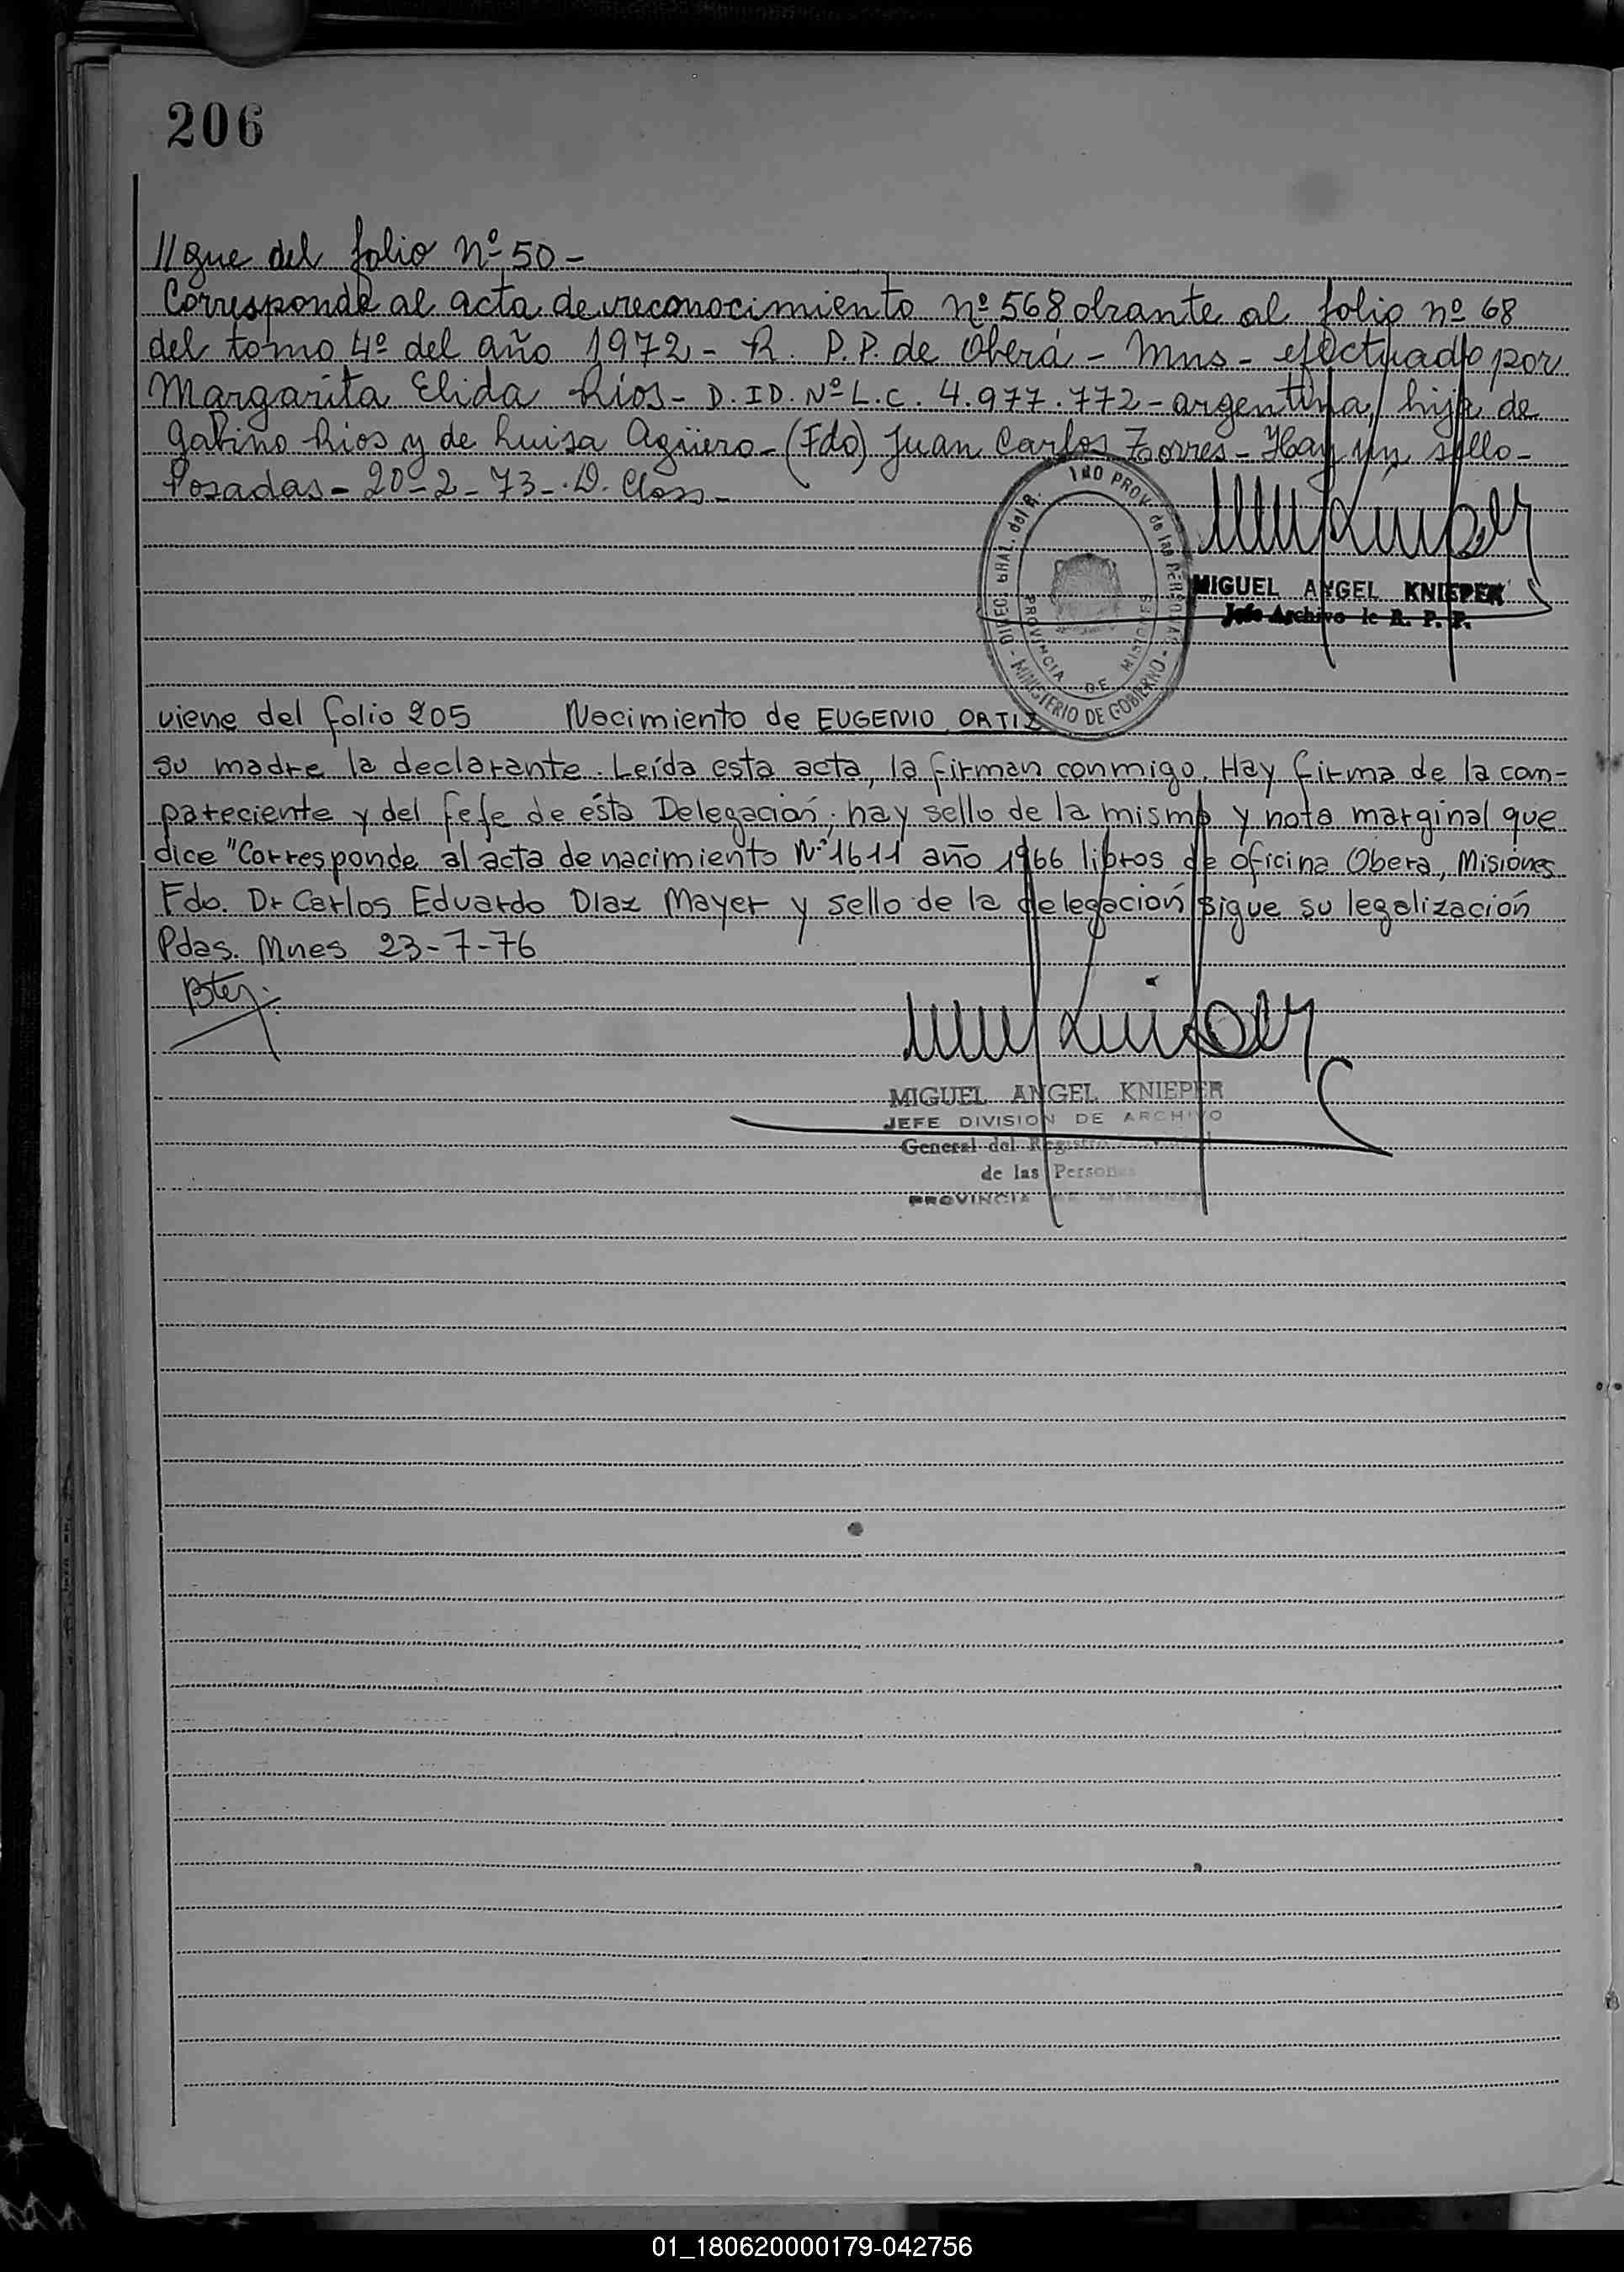 206
//gue del folio Nº 50 -
Corresponde al acta de reconocimiento Nº 568 obrante al folio nº 68
del tomo 4º del año 1972 - R. P.P. de Oberá - Mns - efectuado por
Margarita Elida Rios - D. ID. Nº L.C. 4.977.772 - argentina, hija de
Gabino Rios y de Luisa Agüero - (Fdo) Juan Carlos Torres - Hay un sello -
Posadas - 20-2-73 - D. Closs -
DIREC. GRAL. del R. PROV. de las PERSONAS - MINISTERIO DE GOBIERNO -
PROVINCIA DE MISIONES
MIGUEL ANGEL KNIEPER
Jefe Archivo R. P. P.
viene del folio 205 Nacimiento de EUGENIO ORTIZ
su madre la declarante. Leída esta acta, la firman conmigo. Hay firma de la com-
pareciente y del fefe de ésta Delegación; hay sello de la misma y nota marginal que
dice "Corresponde al acta de nacimiento Nº 1611 año 1966 libros de oficina Obera, Misiones
Fdo. Dr Carlos Eduardo Diaz Mayer y sello de la delegación sigue su legalización
Pdas. Mnes 23-7-76
MIGUEL ANGEL KNIEPER
JEFE DIVISION DE ARCHIVO
General del Registro
de las Personas
PROVINCIA DE MISIONES
01_180620000179-042756